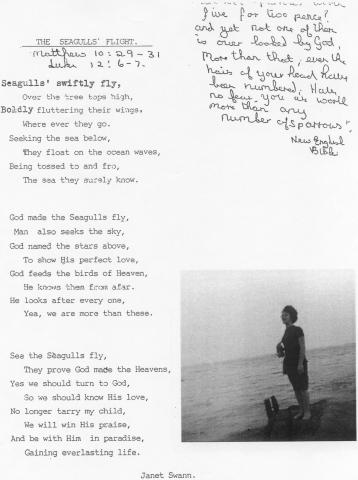 THE SEAGULLS' FLIGHT.
Matthew 10:29-31
Luke 12:6-7.
five for two pence?
and yet not one of them
is over looked by God,
More than that, even the
hairs of your head have
been numbered. Have
no fear, you are worth
more than any
number of sparrows".
New English
Bible
Seagulls' swiftly fly,
Over the tree tops high,
Boldly fluttering their wings,
Where ever they go.
Seeking the sea below,
They float on the ocean waves,
Being tossed to and fro,
The sea they surely know.
God made the Seagulls fly,
Man also seeks the sky,
God named the stars above,
To show His perfect love,
God feeds the birds of Heaven,
He knows them from afar.
He looks after every one,
Yea, we are more than these.
See the Seagulls fly,
They prove God made the Heavens,
Yes we should turn to God,
So we should know His love,
No longer tarry my child,
We will win His praise,
And be with Him in paradise,
Gaining everlasting life.
Janet Swann.